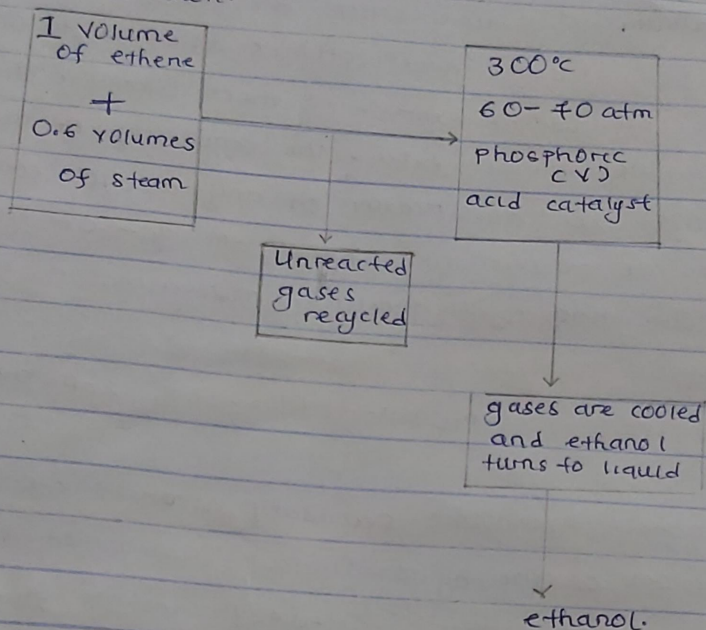 1 volume
of ethene
+
0.6 volumes
of steam
300°C
60-70 atm
phosphoric
(V)
acid catalyst
Unreacted
gases
recycled
gases are cooled
and ethanol
turns to liquid
ethanol.